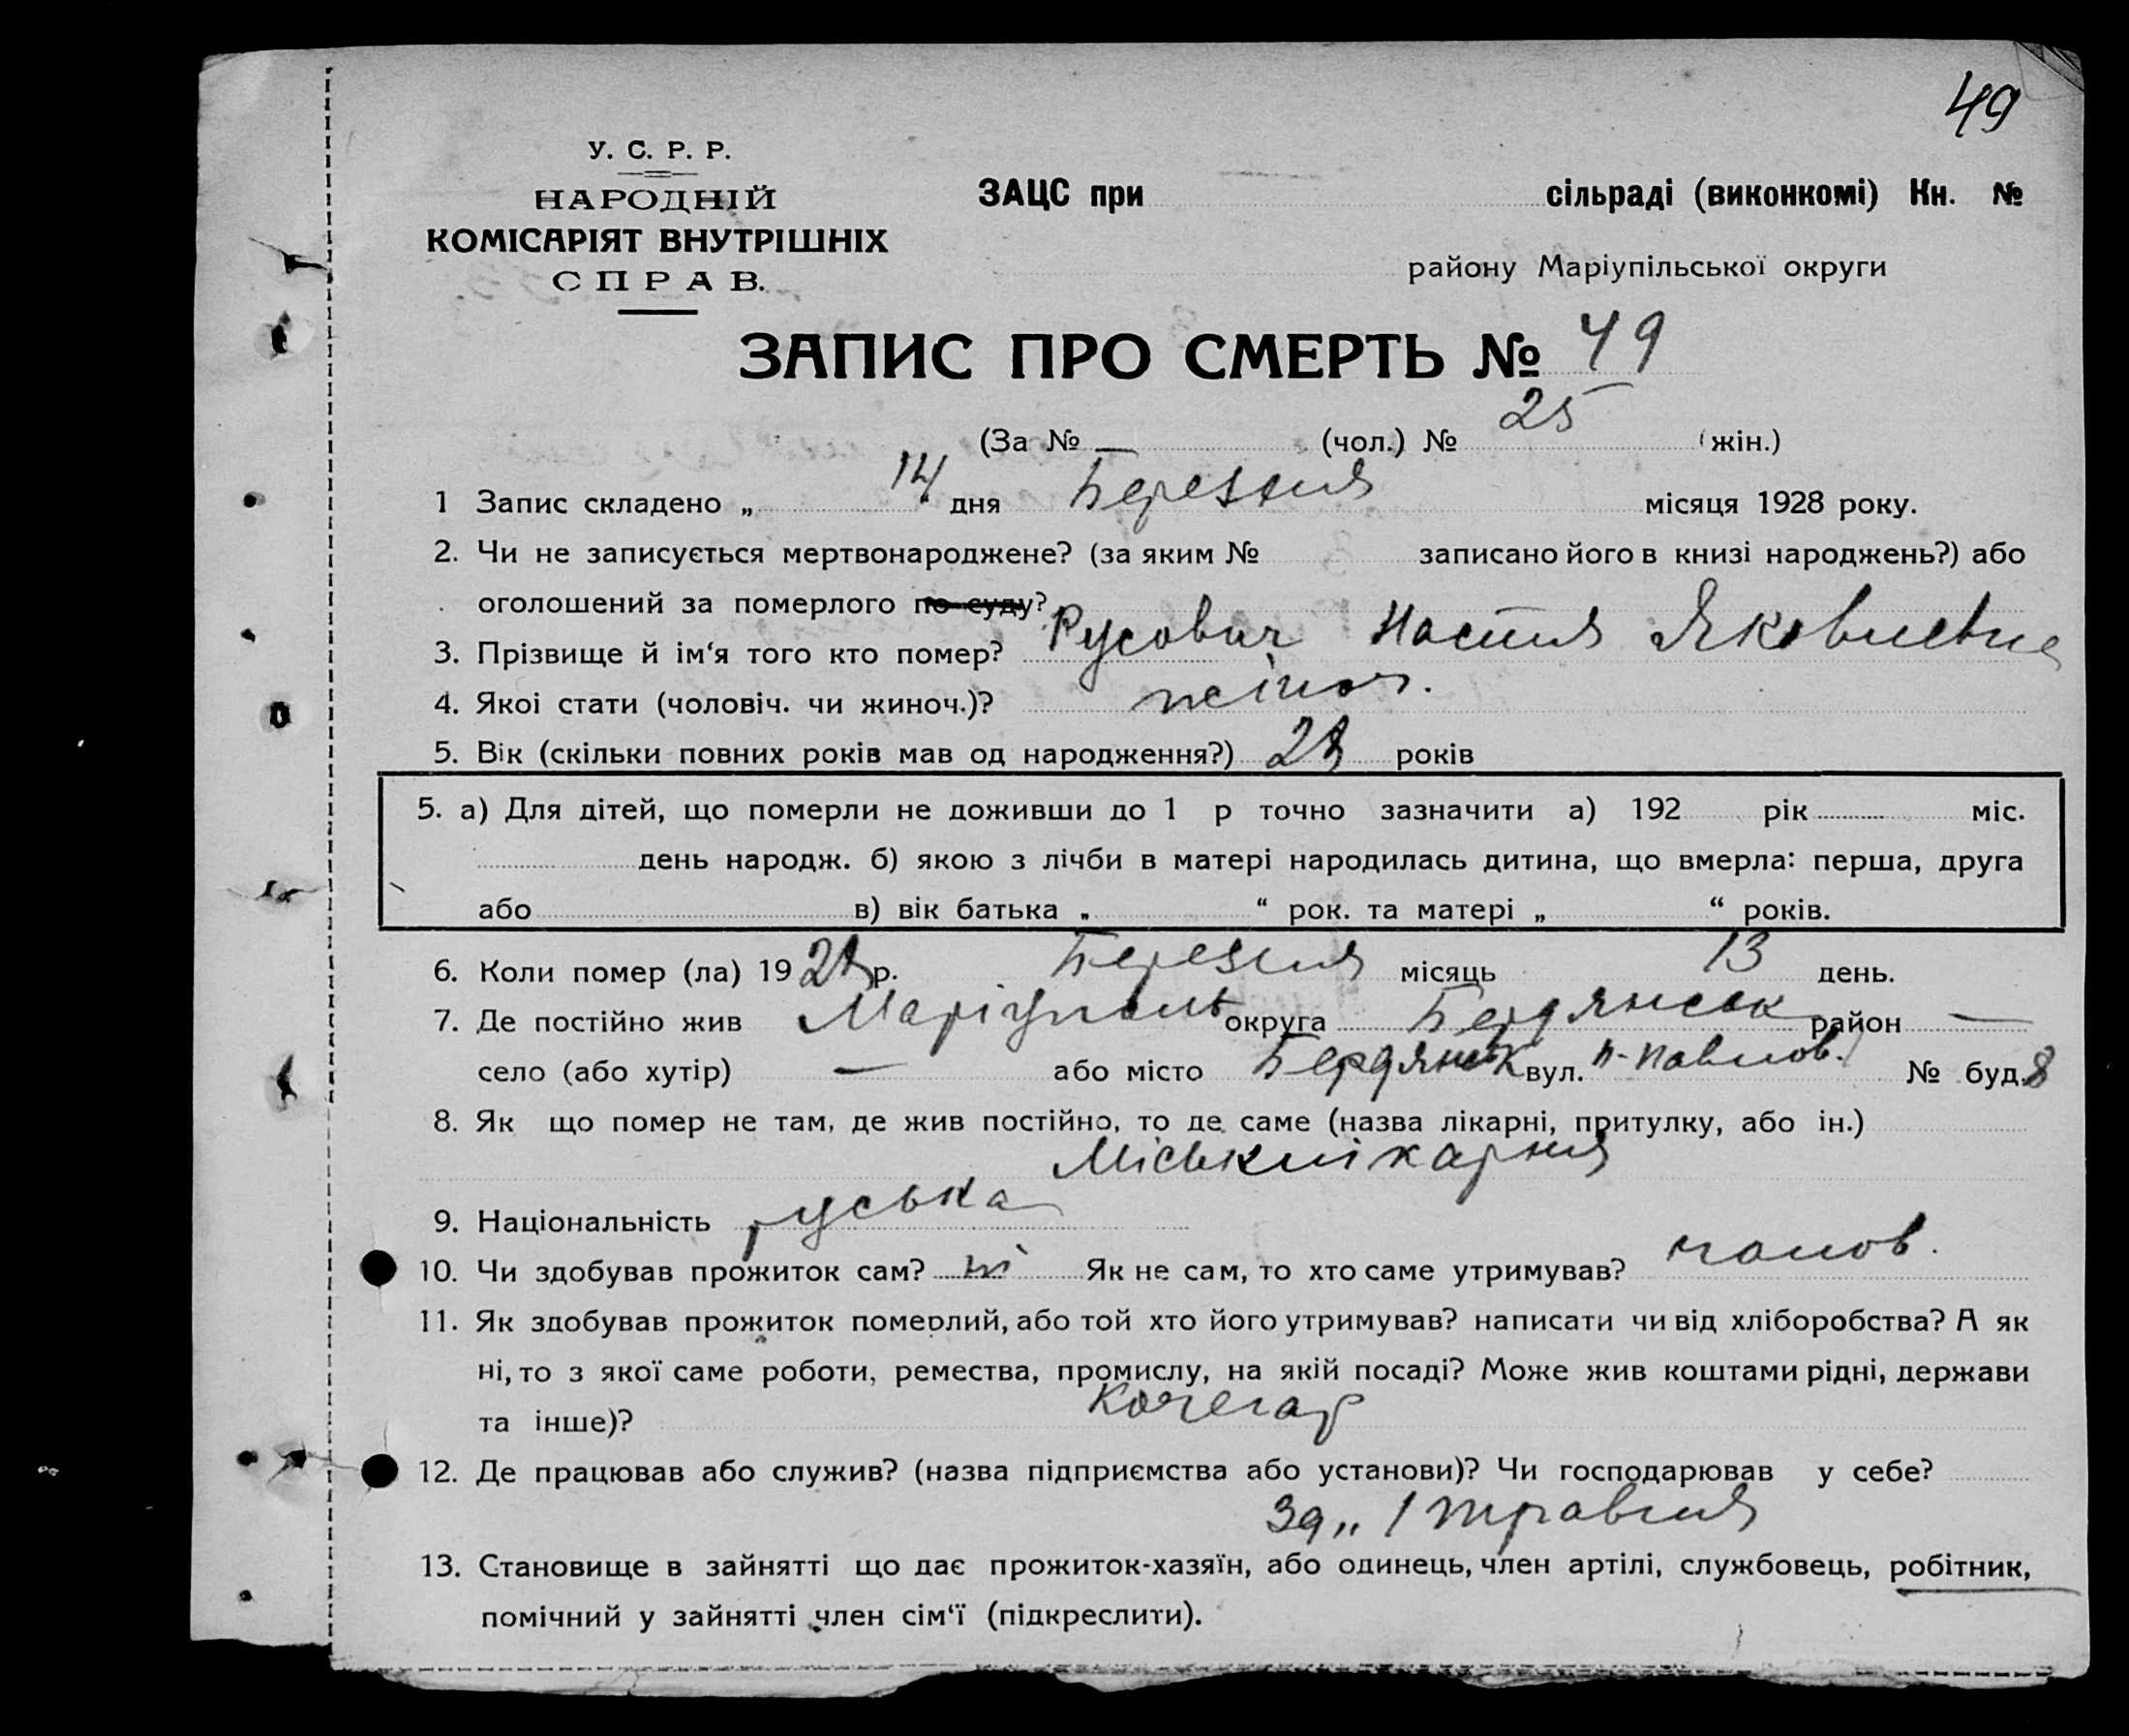 49
У. С. Р. Р.
НАРОДНІЙ
КОМІСАРІЯТ ВНУТРІШНІХ
СПРАВ.
ЗАЦС при сільраді (виконкомі) Кн. №
району Маріупільської округи
ЗАПИС ПРО СМЕРТЬ № 49
(За № — (чол.) № 25 (жін.)
1 Запис складено „ 14 дня Березня місяця 1928 року.
2. Чи не записується мертвонароджене? (за яким № записано його в книзі народжень?) або
оголошений за померлого по суду?
3. Прізвище й ім‘я того кто помер? Русович Настя Яковлевна
4. Якоі стати (чоловіч. чи жиноч.)? жіноч.
5. Вік (скільки повних років мав од народження?) 28 років
5. а) Для дітей, що померли не доживши до 1 р точно зазначити а) 192 рік міс.
день народж. б) якою з лічби в матері народилась дитина, що вмерла: перша, друга
або в) вік батька „ “ рок. та матері „ “ років.
6. Коли помер (ла) 1928 р. Березня місяць 13 день.
7. Де постійно жив Маріуполь округа Бердянськ район —
село (або хутір) — або місто Бердянськ вул. П-Павлов. № буд. 8
8. Як що помер не там, де жив постійно, то де саме (назва лікарні, притулку, або ін.)
Міськлікарня
9. Національність руська
10. Чи здобував прожиток сам? ні Як не сам, то хто саме утримував? чолов.
11. Як здобував прожиток померлий, або той хто його утримував? написати чи від хліборобства? А як
ні, то з якої саме роботи, ремества, промислу, на якій посаді? Може жив коштами рідні, держави
та інше)? Кочегар
12. Де працював або служив? (назва підприємства або установи)? Чи господарював у себе?
Зд „ 1 травня
13. Становище в зайнятті що дає прожиток-хазяїн, або одинець, член артілі, службовець, робітник,
помічний у зайнятті член сім‘ї (підкреслити).